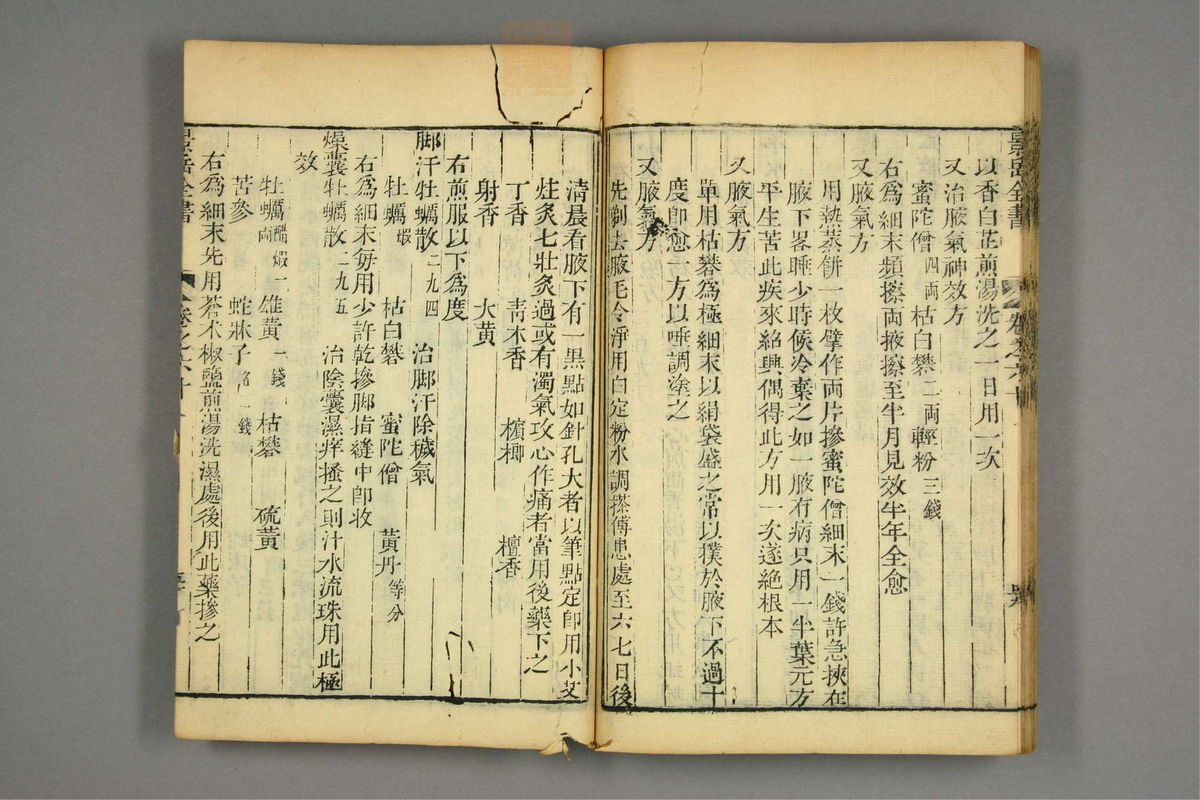 景岳全書
以香白芷煎湯洗之一日用一次
又治腋氣神效方
蜜陀僧四兩 枯白礬二兩 輕粉三錢
右爲細末頻擦両掖擦至半月見效半年全愈
又腋氣方
用熱蒸餅一枚擘作両片摻蜜陀僧細末一錢許急挾在
腋下畧睡少時候冷棄之如一腋有病只用一半葉元方
平生苦此疾來紹興偶得此方用一次遂絶根本
又腋氣方
單用枯礬爲極細末以絹袋盛之常以撲於腋下不過十
度卽愈一方以唾調塗之
又腋氣方
先剃去腋毛令淨用白定粉水調搽傅患處至六七日後
清晨看腋下有一黑點如針孔大者以筆點定卽用小艾
炷灸七壯灸過或有濁氣攻心作痛者當用後藥下之
丁香 靑木香 檳榔 檀香
射香 大黄
右煎服以下爲度
脚汗牡蠣散二九四 治脚汗除穢氣
牡蠣煆 枯白礬 蜜陀僧 黃丹等分
右爲細末每用少許乾摻脚指縫中卽收
燥囊牡蠣散二九五 治陰囊濕痒搔之則汁水流珠用此極
效
牡蠣醋煆 両 雄黃一錢 枯礬 硫黃
苦參 蛇牀子各一錢
右爲細末先用蒼术椒鹽煎湯洗濕處後用此藥摻之
景岳全書